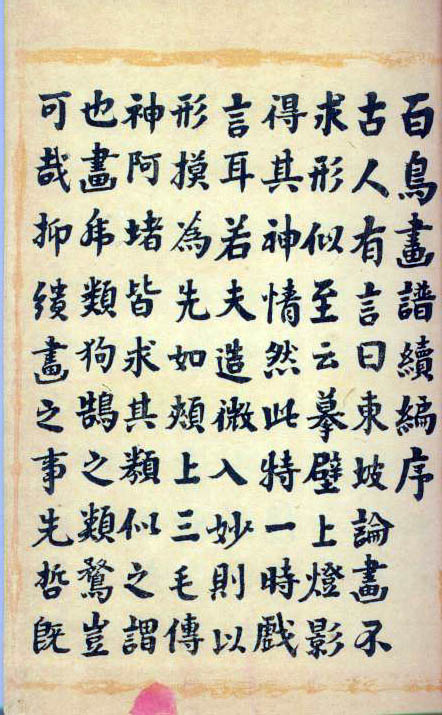 百鳥畫譜續編序
古人有言曰東坡論畫不
求形似至云摹壁上燈影
得其神情然此特一時戲
言耳若夫造微入妙則以
形摸為先如頰上三毛傳
神阿堵皆求其類似之謂
也畫乕類狗鵠之類鶩豈
可哉抑繢畫之事先哲既